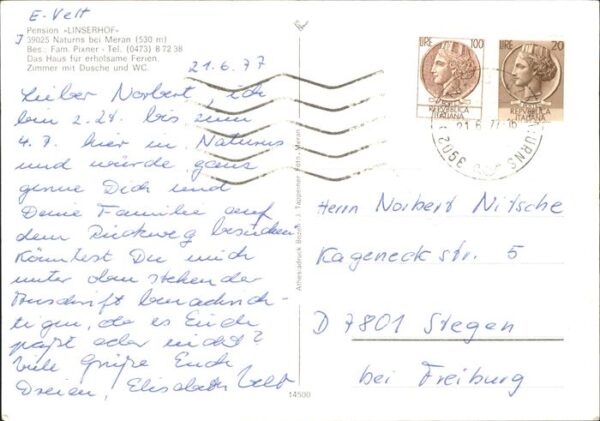 E. Velt
Pension »LINSERHOF«
I 39025 Naturns bei Meran (530 m)
Bes.: Fam. Pixner - Tel. (0473) 8 72 38
Das Haus für erholsame Ferien.
Zimmer mit Dusche und WC.
21.6.77
Lieber Norbert, ich
bin 2. bis zum
4.7. hier in Naturns
und würde ganz
gerne Dich und
Deine Familie auf
dem Rückweg besuchen
Könntest Du mich
unter dem stehender
Anschrift benachrich-
tigen, ob es Euch
paßt oder nicht?
Viele Grüße Euch
Dreien, Elisabeth Velt
Athesiadruck Bozen - J. Tappeiner Foto, Meran
14500
LIRE 100
REPVBBLICA
ITALIANA
LIRE 20
REPVBBLICA
ITALIANA
21.6.77-16
39025
Herrn Norbert Nitsche
Kageneckstr. 5
D 7801 Stegen
bei Freiburg